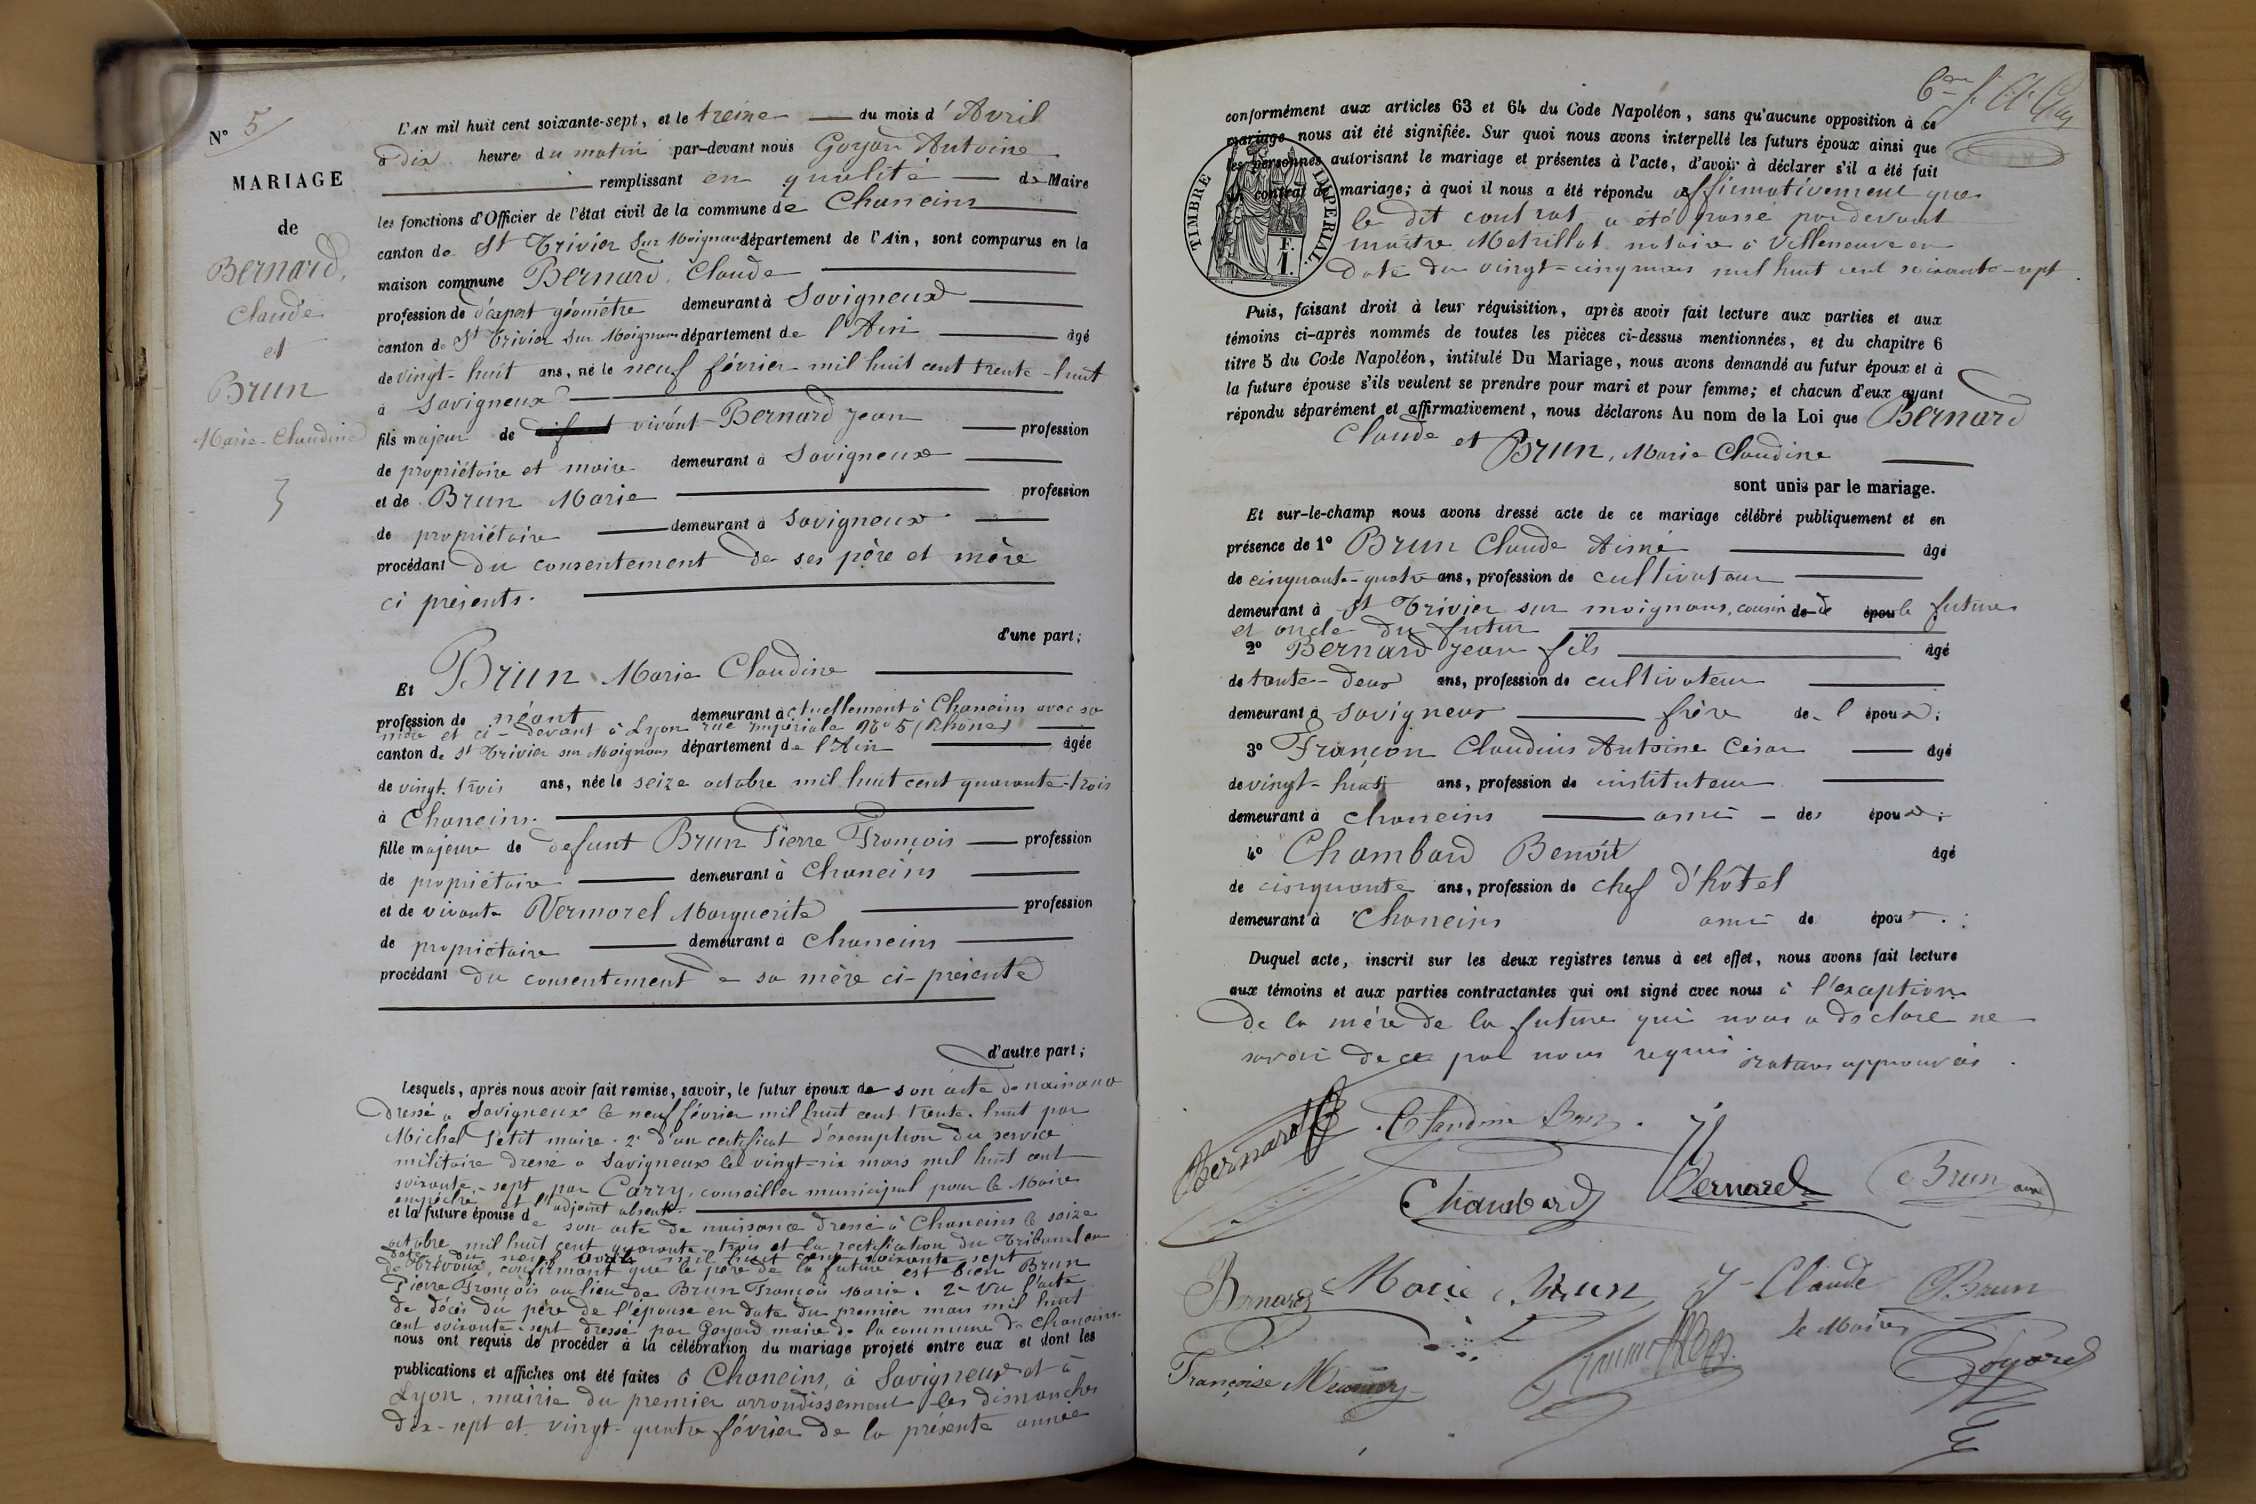 N° 5
MARIAGE
de
Bernard,
Claude
et
Brun
Marie-Claudine
L'AN mil huit cent soixante-sept, et le treize du mois d'Avril
à dix heure du matin par-devant nous Goyard Antoine
remplissant en qualité de Maire
les fonctions d'Officier de l'état civil de la commune de Chaneins
canton de St Trivier sur Moignans département de l'Ain, sont comparus en la
maison commune Bernard, Claude
profession de d'expert géomètre demeurant à Savigneux
canton de St Trivier sur Moignans département de l'Ain âgé
de vingt-huit ans, né le neuf février mil huit cent trente-huit
à Savigneux
fils majeur de vivant Bernard Jean profession
de propriétaire et maire demeurant à Savigneux
et de Brun Marie profession
de propriétaire demeurant à Savigneux
procédant du consentement de ses père et mère
ci présents.
d'une part;
Et Brun Marie Claudine
profession de néant demeurant actuellement à Chaneins avec sa
mère et ci-devant à Lyon rue impériale No 5 (Rhône)
canton de St Trivier sur Moignans département de l'Ain âgée
de vingt-trois ans, née le seize octobre mil huit cent quarante-trois
à Chaneins.
fille majeure de defunt Brun Pierre François profession
de propriétaire demeurant à Chaneins
et de vivante Vermorel Marguerite profession
de propriétaire demeurant à Chaneins
procédant du consentement de sa mère ci-présente
d'autre part;
Lesquels, après nous avoir fait remise, savoir, le futur époux de son acte de naissance
dressé à Savigneux le neuf février mil huit cent trente-huit par
Michel Petit maire. 2° d'un certificat d'exemption du service
militaire dressé à Savigneux le vingt-six mars mil huit cent
soixante-sept par Carry, conseiller municipal pour le Maire
empêché et l'adjoint absent.
et la future épouse de son acte de naissance dressé à Chaneins le seize
octobre mil huit cent quarante-trois et la rectification du Tribunal en
date du neuf avril mil huit cent soixante sept
de Trévoux, confirmant que le père de la future est bien Brun
Pierre François au lieu de Brun François Marie. 2° Vu l'acte
de décès du père de l'épouse en date du premier mars mil huit
cent soixante-sept dressé par Goyard maire de la commune de Chaneins.
nous ont requis de procéder à la célébration du mariage projeté entre eux et dont les
publications et affiches ont été faites à Chaneins, à Savigneux et à
Lyon, mairie du premier arrondissement les dimanches
dix-sept et vingt-quatre février de la présente année
conformément aux articles 63 et 64 du Code Napoléon, sans qu'aucune opposition à ce
mariage nous ait été signifiée. Sur quoi nous avons interpellé les futurs époux ainsi que
les personnes autorisant le mariage et présentes à l'acte, d'avoir à déclarer s'il a été fait
un contrat de mariage; à quoi il nous a été répondu affirmativement que
le dit contrat a été passé par devant
maître Metrillot notaire à Villeneuve en
date du vingt-cinq mars mil huit cent soixante-sept.
TIMBRE IMPÉRIAL
F.
1.
Puis, faisant droit à leur réquisition, après avoir fait lecture aux parties et aux
témoins ci-après nommés de toutes les pièces ci-dessus mentionnées, et du chapitre 6
titre 5 du Code Napoléon, intitulé Du Mariage, nous avons demandé au futur époux et à
la future épouse s'ils veulent se prendre pour mari et pour femme; et chacun d'eux ayant
répondu séparément et affirmativement, nous déclarons Au nom de la Loi que Bernard
Claude et Brun, Marie Claudine
sont unis par le mariage.
Et sur-le-champ nous avons dressé acte de ce mariage célébré publiquement et en
présence de 1° Brun Claude Aimé âgé
de cinquante-quatre ans, profession de cultivateur
demeurant à St Trivier sur moignans, cousin de la future
et oncle du futur
2° Bernard Jean fils âgé
de trente-deux ans, profession de cultivateur
demeurant à Savigneux frère de l'époux;
3° Françon Claudius Antoine César âgé
de vingt-huit ans, profession de instituteur
demeurant à Chaneins ami des époux;
4° Chambard Benoit âgé
de cinquante ans, profession de chef d'hôtel
demeurant à Chaneins ami de époux.
Duquel acte, inscrit sur les deux registres tenus à cet effet, nous avons fait lecture
aux témoins et aux parties contractantes qui ont signé avec nous à l'exception
de la mère de la future qui nous a déclaré ne
savoir de ce par nous requis ratures approuvées.
Bernard Claudine Brun
Chambard Bernard C Brun aimé
Bernard Marie Brun J-Claude Brun
le Maire
Françoise Goyard